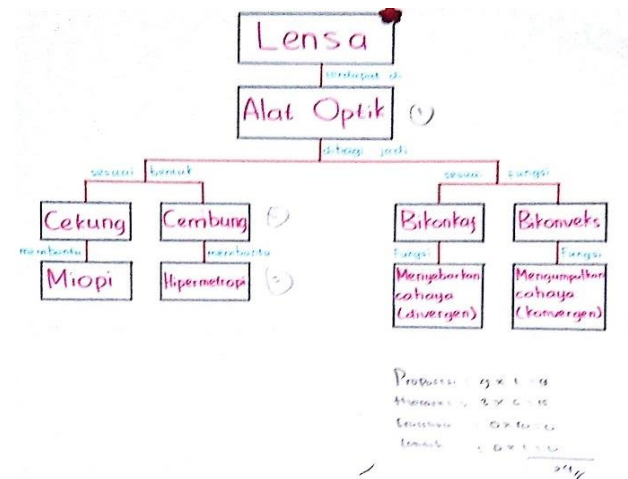 Lensa
terdapat di
Alat Optik
dibagi jadi
sesuai bentuk
sesuai fungsi
Cekung
Cembung
Bikonkaf
Bikonveks
membantu
membantu
Fungsi
Fungsi
Miopi
Hipermetropi
Menyebarkan
cahaya
(divergen)
Mengumpulkan
cahaya
(konvergen)